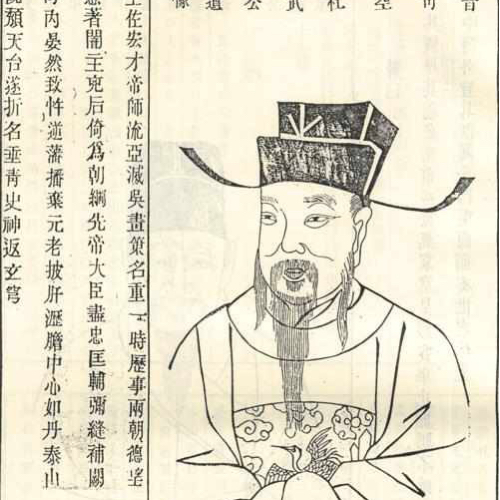 司空壯武公遺像
王佐宏才帝師流亞滅吳畫策名重一時歷事兩朝德望
著闇主兇后倚為朝綱先帝大臣盡忠匡輔彌縫補闕
內晏然致忤逆藩播棄元老披肝瀝膽中心如丹泰山
頹天台遂折名垂青史神返玄穹